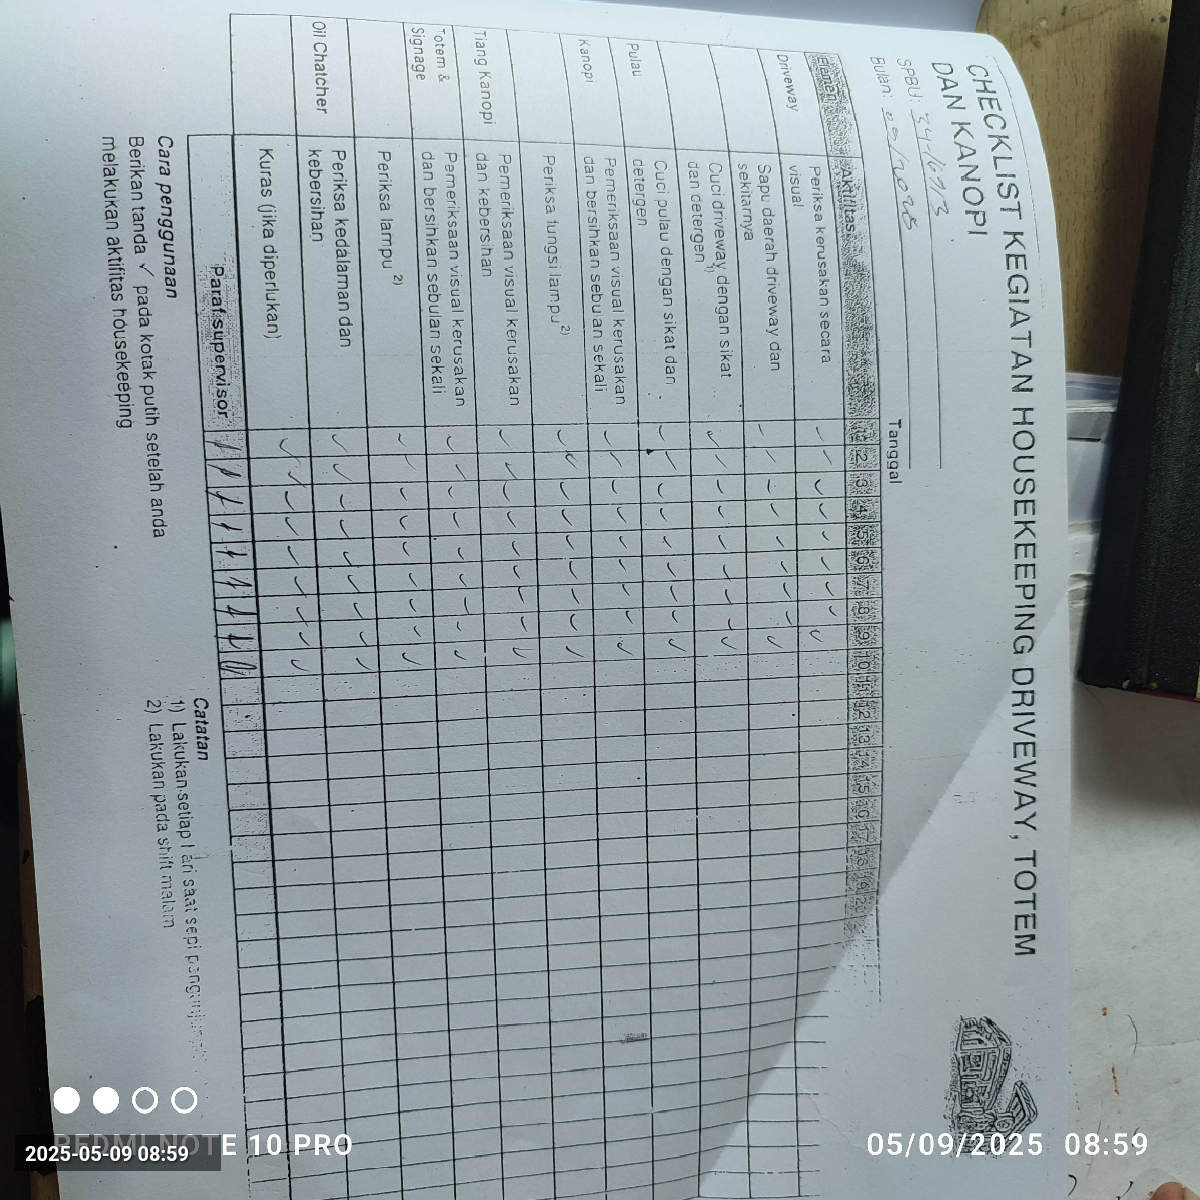 CHECKLIST KEGIATAN HOUSEKEEPING DRIVEWAY, TOTEM
DAN KANOPI
SPBU: 34-16713
Bulan: 05/2025
Tanggal
Elemen Aktifitas 1 2 3 4 5 6 7 8 9 10 11 12 13 14 15 16 17 18 19 20
Driveway
Periksa kerusakan secara
visual
Sapu daerah driveway dan
sekitarnya
Cuci driveway dengan sikat
dan detergen 1)
Pulau
Cuci pulau dengan sikat dan
detergen
Kanopi
Pemeriksaan visual kerusakan
dan bersihkan sebulan sekali
Periksa fungsi lampu 2)
Tiang Kanopi
Pemeriksaan visual kerusakan
dan kebersihan
Totem &
Signage
Pemeriksaan visual kerusakan
dan bersihkan sebulan sekali
Periksa lampu 2)
Oil Chatcher
Periksa kedalaman dan
kebersihan
Kuras (jika diperlukan)
Paraf supervisor
Cara penggunaan
Berikan tanda ✓ pada kotak putih setelah anda
melakukan aktifitas housekeeping
Catatan
1) Lakukan setiap hari saat sepi pengunjung
2) Lakukan pada shift malam
REDMI NOTE 10 PRO
2025-05-09 08:59
05/09/2025 08:59